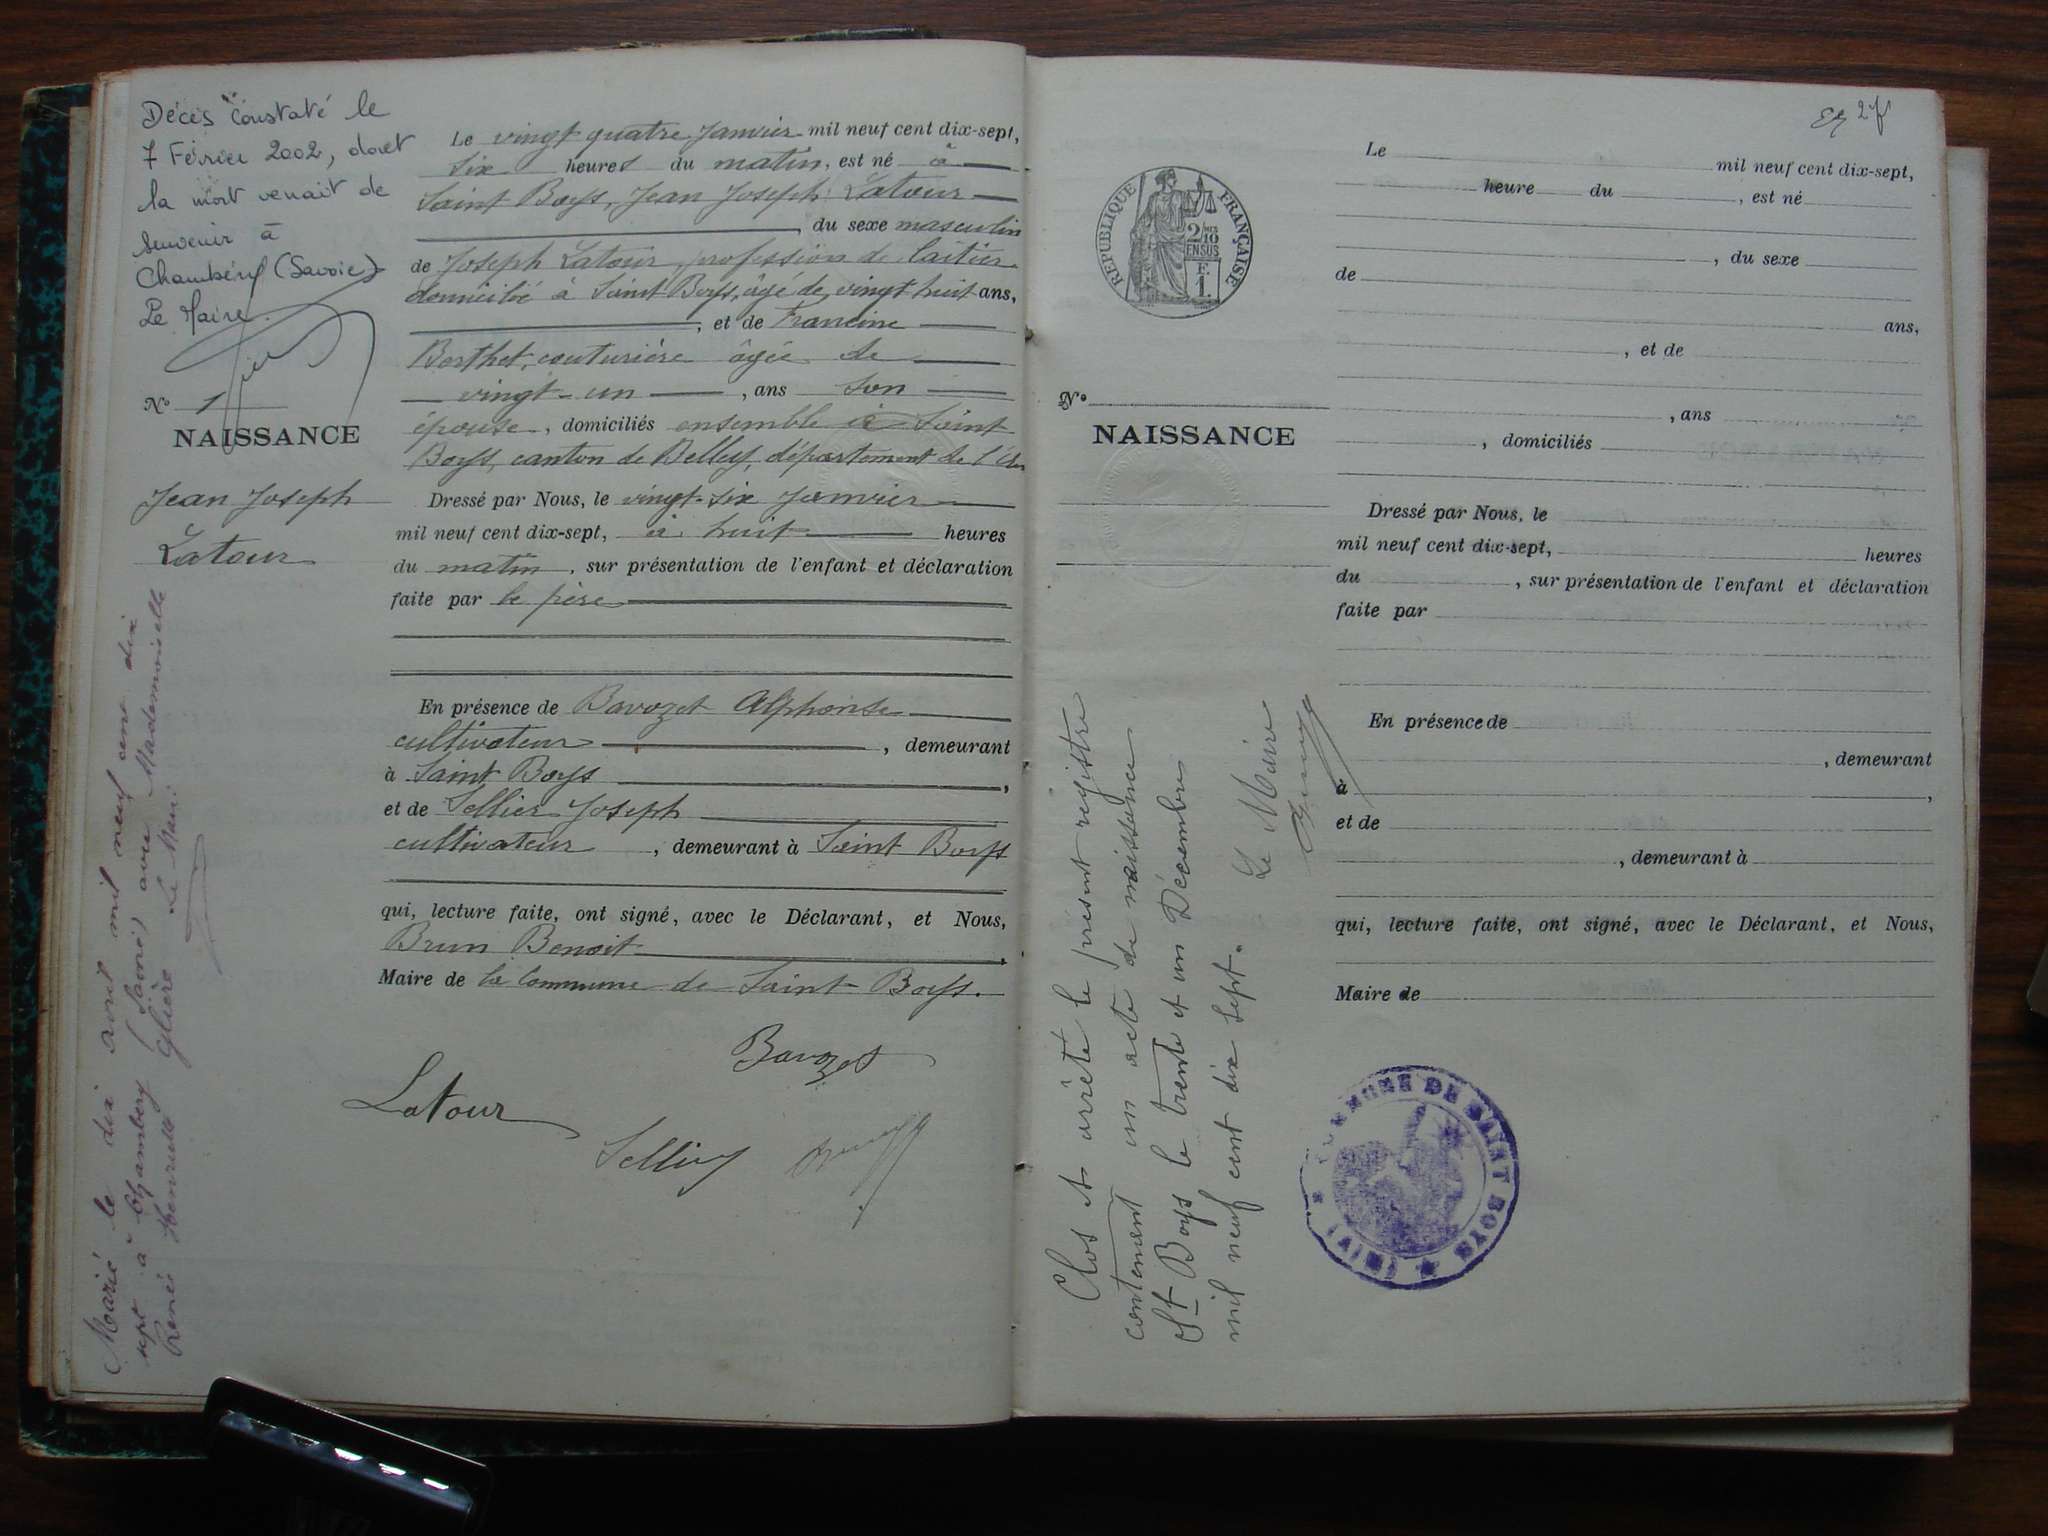 Décès constaté le
7 Février 2002, dont
la mort venait de
survenir à
Chambéry (Savoie)
Le Maire.
N° 1
NAISSANCE
Jean Joseph
Latour
Marié le dix avril mil neuf cent dix
sept à Chambery (Savoie) avec Mademoiselle
Renée Henriette Glière Le Maire
Le vingt quatre Janvier mil neuf cent dix-sept,
six heures du matin, est né à
Saint Boys, Jean Joseph Latour
, du sexe masculin
de Joseph Latour, profession de laitier
domicilié à Saint Boys, âgé de vingt huit ans,
, et de Francine
Berthet, couturière âgée de
vingt-un , ans son
épouse, domiciliés ensemble à Saint
Boys, canton de Belley, département de l'Ain
Dressé par Nous, le vingt-six Janvier
mil neuf cent dix-sept, à huit heures
du matin, sur présentation de l'enfant et déclaration
faite par le père
En présence de Bavozet Alphonse
cultivateur , demeurant
à Saint Boys ,
et de Sellier Joseph
cultivateur , demeurant à Saint Boys
qui, lecture faite, ont signé, avec le Déclarant, et Nous,
Brun Benoit ,
Maire de la commune de Saint-Boys.
Bavozet
Latour
Sellier
2
REPUBLIQUE FRANÇAISE
2/10
EN SUS
F.
1.
N°
NAISSANCE
Le mil neuf cent dix-sept,
heure du , est né
, du sexe
de
ans,
, et de
, ans
, domiciliés
Dressé par Nous, le
mil neuf cent dix-sept, heures
du , sur présentation de l'enfant et déclaration
faite par
En présence de
, demeurant
à ,
et de
, demeurant à
qui, lecture faite, ont signé, avec le Déclarant, et Nous,
Maire de
Clos et arrêté le présent registre
contenant un acte de naissance
St Boys le trente et un Décembre
mil neuf cent dix sept.
Le Maire
COMMUNE DE SAINT BOYS (AIN)